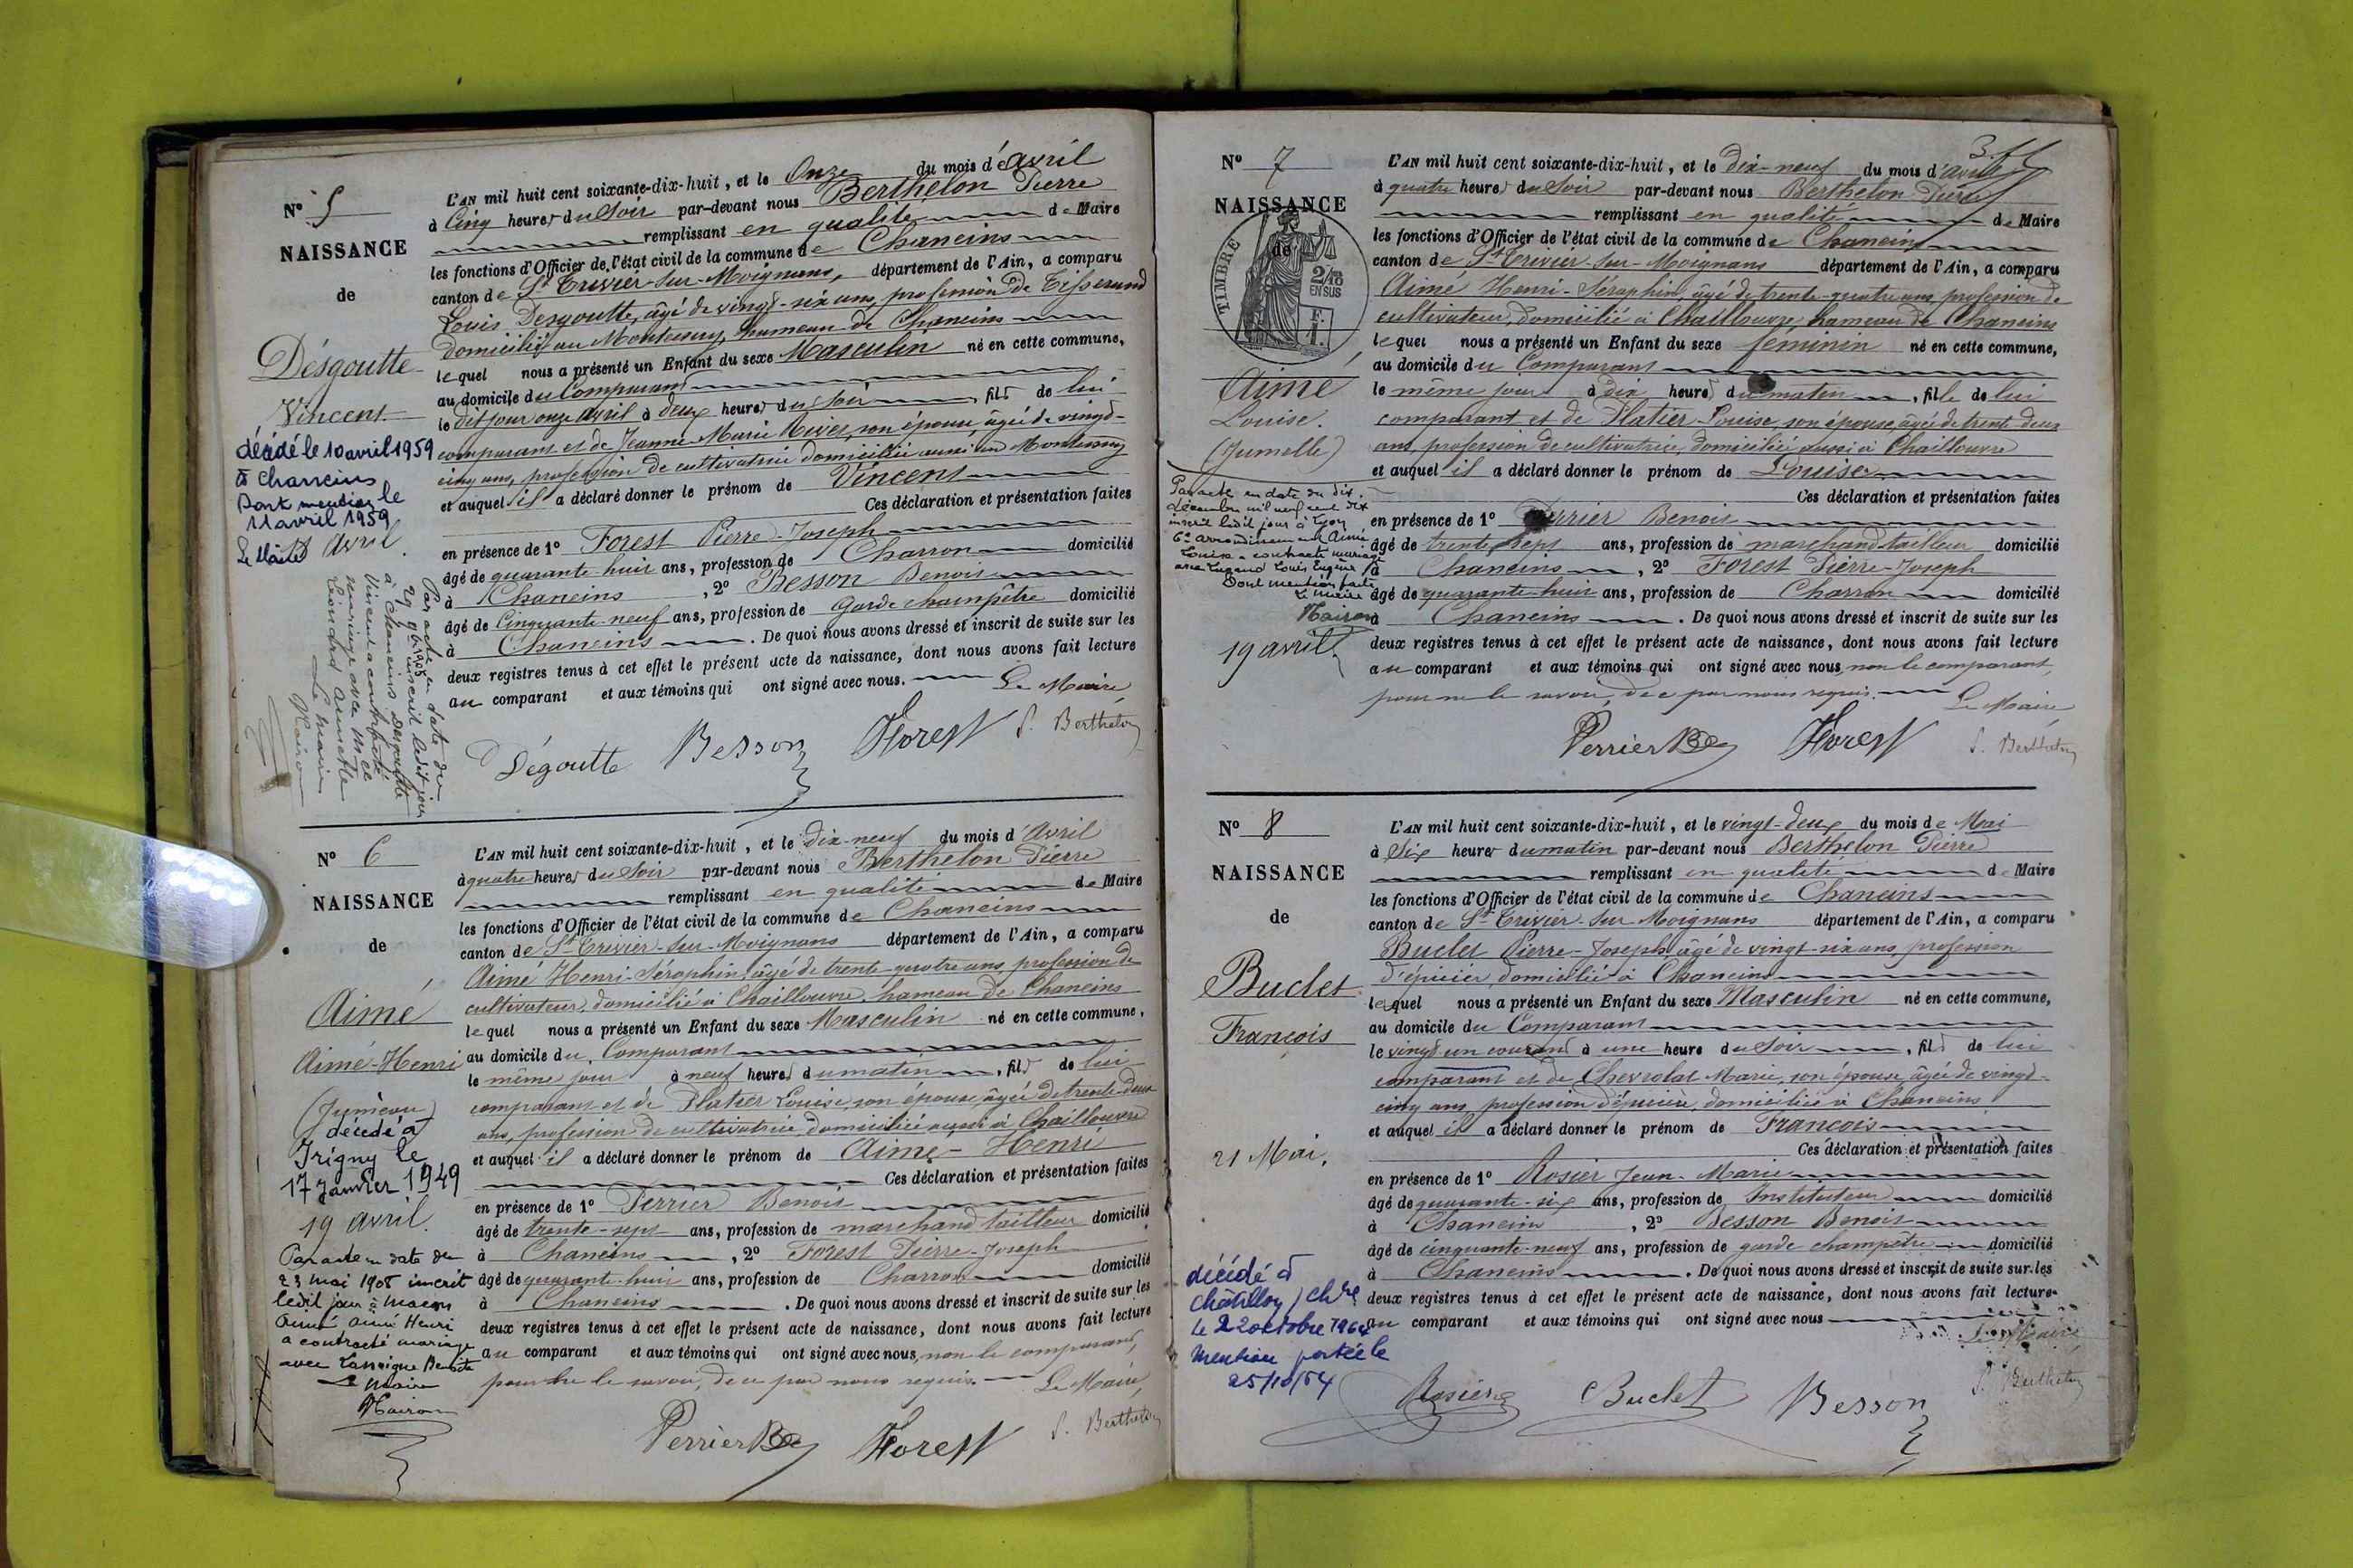 N° 5
NAISSANCE
de
Désgoutte
Vincent
décédé le 10 avril 1959
à Chaneins
Dont mention le
11 avril 1959
Le Maire
11 Avril.
Par acte en date du
29 9bre 1905 inscrit ledit jour
à Chaneins Desgoutte
Vincent a contracté
mariage avec Melle
Léonard Annette
Le Maire
L'AN mil huit cent soixante-dix-huit, et le Onze du mois d'avril
à Cinq heures du Soir par-devant nous Berthelon Pierre
remplissant en qualité de Maire
les fonctions d'Officier de l'état civil de la commune de Chaneins
canton de St Trivier-sur-Moignans, département de l'Ain, a comparu
Louis Desgoutte, âgé de vingt-six ans, profession de Tisserand
domicilié au Montessuy, hameau de Chaneins
lequel nous a présenté un Enfant du sexe Masculin né en cette commune,
au domicile du Comparant
le dit jour onze avril à deux heures du soir, fils de lui
comparant et de Jeanne Marie, son épouse âgée de vingt-
cinq ans, profession de cultivatrice domiciliée aussi au Montessuy
et auquel il a déclaré donner le prénom de Vincent
Ces déclaration et présentation faites
en présence de 1° Forest Pierre-Joseph
âgé de quarante-huit ans, profession de Charron domicilié
à Chaneins, 2° Besson Benoit
âgé de Cinquante-neuf ans, profession de Garde champêtre domicilié
à Chaneins. De quoi nous avons dressé et inscrit de suite sur les
deux registres tenus à cet effet le présent acte de naissance, dont nous avons fait lecture
au comparant et aux témoins qui ont signé avec nous. Le Maire
Dégoutte Besson Forest P. Berthelon
N° 6
NAISSANCE
de
Aimé
Aimé-Henri
(Jumeau)
décédé à
Irigny le
17 Janvier 1949
19 avril.
Par acte en date du
23 mai 1908 inscrit
ledit jour à Macon
Aimé Aimé Henri
a contracté mariage
avec Benoite
Le Maire
L'AN mil huit cent soixante-dix-huit, et le dix-neuf du mois d'Avril
à quatre heures du Soir par-devant nous Berthelon Pierre
remplissant en qualité de Maire
les fonctions d'Officier de l'état civil de la commune de Chaneins
canton de St Trivier-sur-Moignans département de l'Ain, a comparu
Aimé Henri-Séraphin, âgé de trente-quatre ans, profession de
cultivateur, domicilié à Chaillouvre, hameau de Chaneins
lequel nous a présenté un Enfant du sexe Masculin né en cette commune,
au domicile du Comparant
le même jour à neuf heures du matin, fils de lui
comparant et de Platier Louise, son épouse, âgée de trente-deux
ans, profession de cultivatrice, domiciliée aussi à Chaillouvre
et auquel il a déclaré donner le prénom de Aimé-Henri
Ces déclaration et présentation faites
en présence de 1° Perrier Benoit
âgé de trente-sept ans, profession de marchand tailleur domicilié
à Chaneins, 2° Forest Pierre-Joseph
âgé de quarante-huit ans, profession de Charron domicilié
à Chaneins. De quoi nous avons dressé et inscrit de suite sur les
deux registres tenus à cet effet le présent acte de naissance, dont nous avons fait lecture
au comparant et aux témoins qui ont signé avec nous, non le comparant,
pour ne le savoir, de ce par nous requis. Le Maire,
Perrier Forest P. Berthelon
N° 7
NAISSANCE
de
TIMBRE
2/10
EN SUS
F.
1.
Aimé
Louise.
(Jumelle)
Par acte en date du dix
décembre mil neuf cent dix
inscrit ledit jour à Lyon
6e arrondissement Aimé
Louise a contracté mariage
avec Louis Eugène
Dont mention faite
Le Maire
19 avril
L'AN mil huit cent soixante-dix-huit, et le dix-neuf du mois d'avril
à quatre heures du Soir par-devant nous Berthelon Pierre
remplissant en qualité de Maire
les fonctions d'Officier de l'état civil de la commune de Chaneins
canton de St Trivier-sur-Moignans département de l'Ain, a comparu
Aimé Henri-Séraphin, âgé de trente-quatre ans, profession de
cultivateur, domicilié à Chaillouvre, hameau de Chaneins
lequel nous a présenté un Enfant du sexe féminin né en cette commune,
au domicile du Comparant
le même jour à dix heures du matin, fille de lui
comparant et de Platier Louise, son épouse, âgée de trente deux
ans, profession de cultivatrice, domiciliée aussi à Chaillouvre
et auquel il a déclaré donner le prénom de Louise
Ces déclaration et présentation faites
en présence de 1° Perrier Benoit
âgé de trente sept ans, profession de marchand tailleur domicilié
à Chaneins, 2° Forest Pierre-Joseph
âgé de quarante-huit ans, profession de Charron domicilié
à Chaneins. De quoi nous avons dressé et inscrit de suite sur les
deux registres tenus à cet effet le présent acte de naissance, dont nous avons fait lecture
au comparant et aux témoins qui ont signé avec nous, non le comparant,
pour ne le savoir, de ce par nous requis. Le Maire
Perrier Forest P. Berthelon
N° 8
NAISSANCE
de
Buclet
François
21 Mai.
décédé à
Châtillon / Chne
le 22 octobre 1964
Mention portée le
25/10/64
L'AN mil huit cent soixante-dix-huit, et le vingt-deux du mois de Mai
à Six heures du matin par-devant nous Berthelon Pierre
remplissant en qualité de Maire
les fonctions d'Officier de l'état civil de la commune de Chaneins
canton de St Trivier-sur-Moignans département de l'Ain, a comparu
Buclet Pierre-Joseph âgé de vingt-six ans, profession
d'épicier, domicilié à Chaneins
lequel nous a présenté un Enfant du sexe Masculin né en cette commune,
au domicile du Comparant
le vingt un courant à une heure du soir, fils de lui
comparant et de Chevrolat Marie, son épouse âgée de vingt-
cinq ans, profession d'épicière, domiciliée à Chaneins
et auquel il a déclaré donner le prénom de François
Ces déclaration et présentation faites
en présence de 1° Rosier Jean-Marie
âgé de quarante-six ans, profession de Instituteur domicilié
à Chaneins, 2° Besson Benoit
âgé de cinquante-neuf ans, profession de garde champêtre domicilié
à Chaneins. De quoi nous avons dressé et inscrit de suite sur les
deux registres tenus à cet effet le présent acte de naissance, dont nous avons fait lecture
au comparant et aux témoins qui ont signé avec nous
Le Maire
Rosier Buclet Besson P. Berthelon